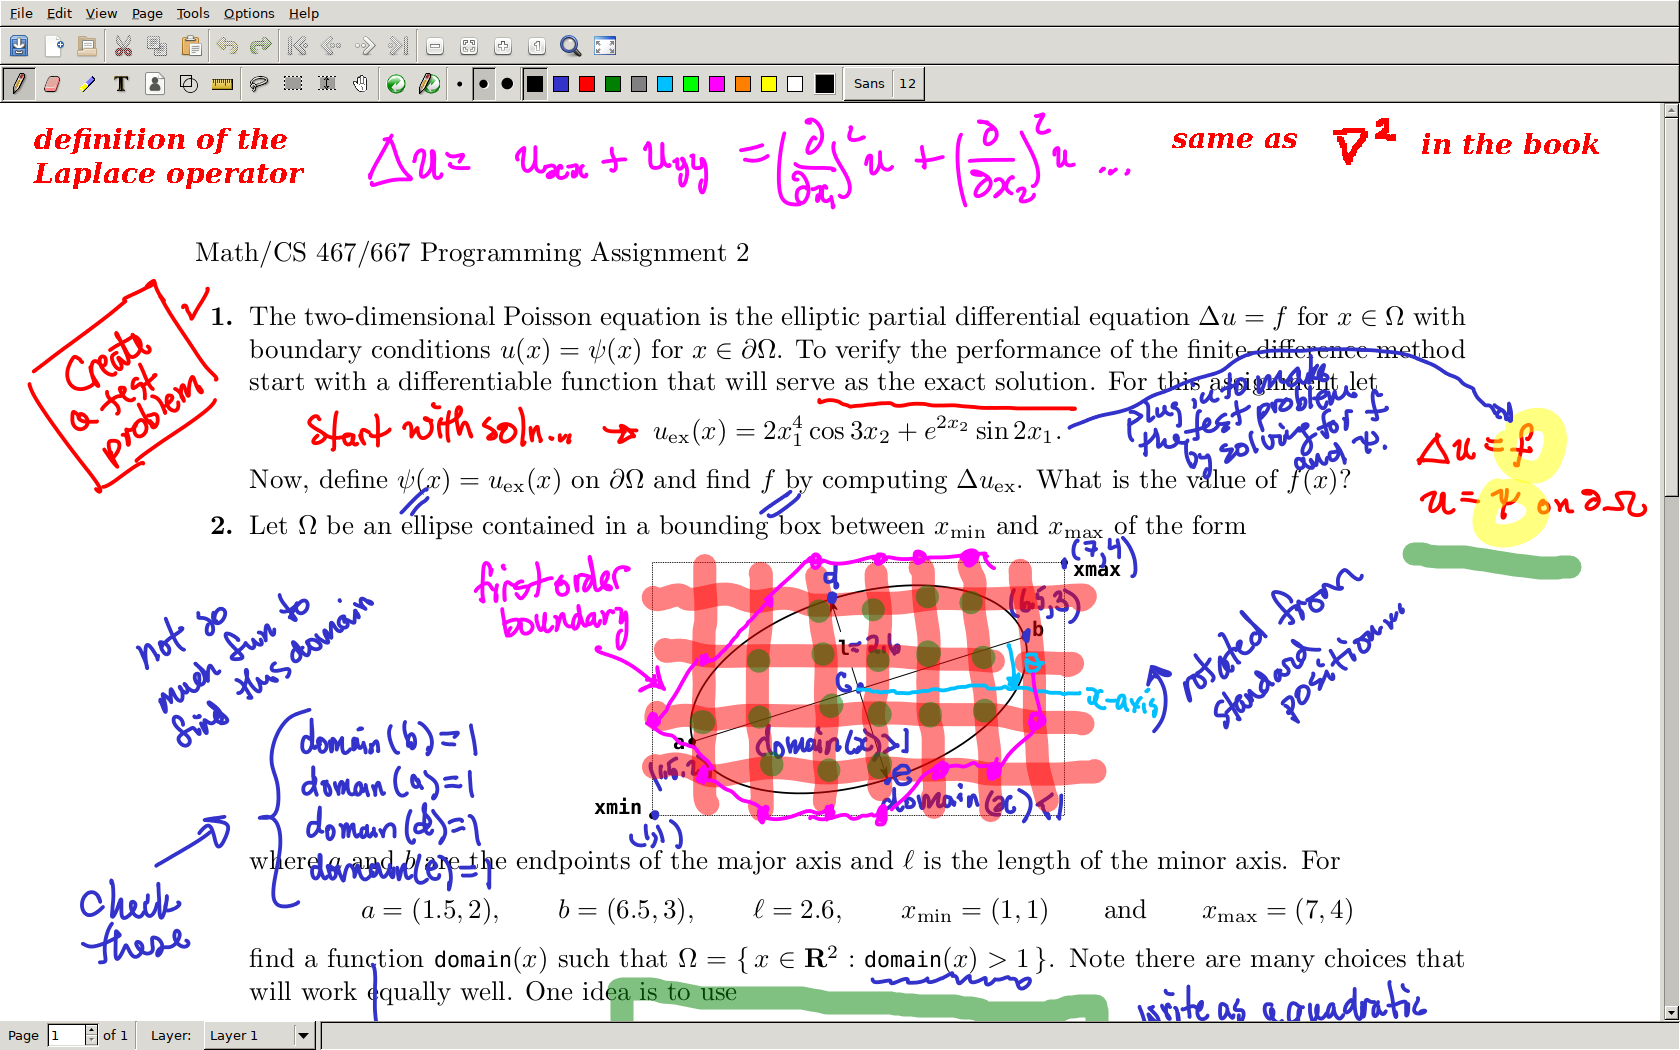 File Edit View Page Tools Options Help
Sans 12
definition of the
Laplace operator
Δu = u_xx + u_yy = (∂/∂x₁)² u + (∂/∂x₂)² u ...
same as ∇² in the book
Math/CS 467/667 Programming Assignment 2
Create
a test
problem
1. The two-dimensional Poisson equation is the elliptic partial differential equation Δu = f for x ∈ Ω with
boundary conditions u(x) = ψ(x) for x ∈ ∂Ω. To verify the performance of the finite-difference method
start with a differentiable function that will serve as the exact solution. For this assignment let
Start with soln... → u_ex(x) = 2x₁⁴ cos 3x₂ + e^{2x₂} sin 2x₁.
plug in to make
the test problem
by solving for f
and ψ.
Δu = f
u = ψ on ∂Ω
Now, define ψ(x) = u_ex(x) on ∂Ω and find f by computing Δu_ex. What is the value of f(x)?
2. Let Ω be an ellipse contained in a bounding box between x_min and x_max of the form
first order
boundary
(7,4)
xmax
d
(6.5,3)
b
l=2.6
c
x-axis
a
(1.5,2)
domain(x)>1
e
domain(x)<1
xmin
(1,1)
rotated from
standard
position...
not so
much fun to
find this domain
domain(b)=1
domain(a)=1
domain(d)=1
domain(e)=1
check
these
where a and b are the endpoints of the major axis and ℓ is the length of the minor axis. For
a = (1.5, 2), b = (6.5, 3), ℓ = 2.6, x_min = (1, 1) and x_max = (7, 4)
find a function domain(x) such that Ω = { x ∈ R² : domain(x) > 1 }. Note there are many choices that
will work equally well. One idea is to use
write as a quadratic
Page 1 of 1 Layer: Layer 1